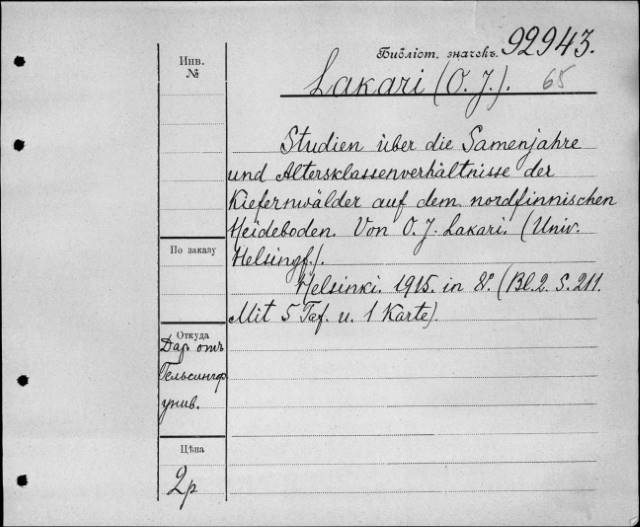 Инв.
№
Библіот. значекъ. 92943.
Lakari (O. J.). 65
Studien über die Samenjahre
und Altersklassenverhältnisse der
Kiefernwälder auf dem nordfinnischen
Heideboden. Von O. J. Lakari. (Univ.
Helsingf.).
Helsinki. 1915. in 8°. (Bl. 2. S. 211.
Mit 5 Taf. u. 1 Karte).
По заказу
Откуда
Дар. отъ
Гельсингф.
унив.
Цѣна
2р